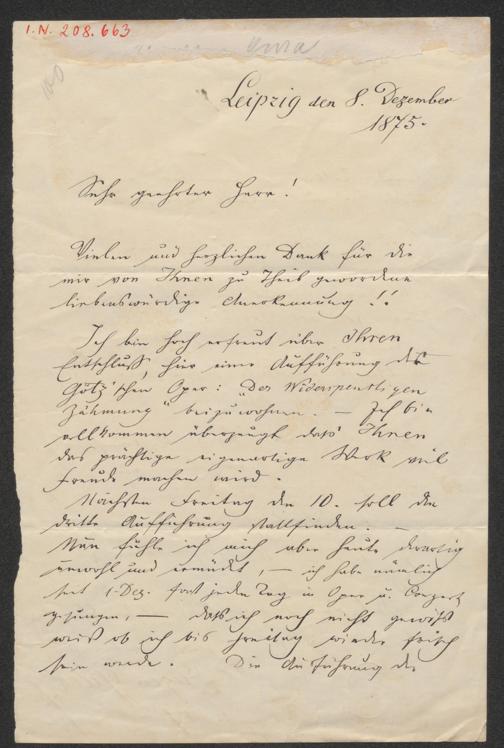 I.N. 208.663
Gura
Leipzig den 8. Dezember
1875.
Sehr geehrter Herr!
Vielen und herzlichen Dank für die
mir von Ihnen zu Theil gewordene
liebenswürdige Anerkennung!!
Ich bin hoch erfreut über Ihren
Entschluß, hier einer Aufführung der
Götz'schen Oper: "Der Widerspenstigen
Zähmung" beizuwohnen. — Ich bin
vollkommen überzeugt daß Ihnen
das prächtige eigenartige Werk viel
Freude machen wird.
Nächsten Freitag den 10. soll die
dritte Aufführung stattfinden. —
Nun fühle ich mich aber heute derartig
unwohl und ermüdet, — ich habe nämlich
seit 1. Dez. fast jeden Tag in Oper u. Conzert
gesungen, — daß ich noch nicht gewiß
weiß ob ich bis Freitag wieder frisch
sein werde. Die Aufführung der